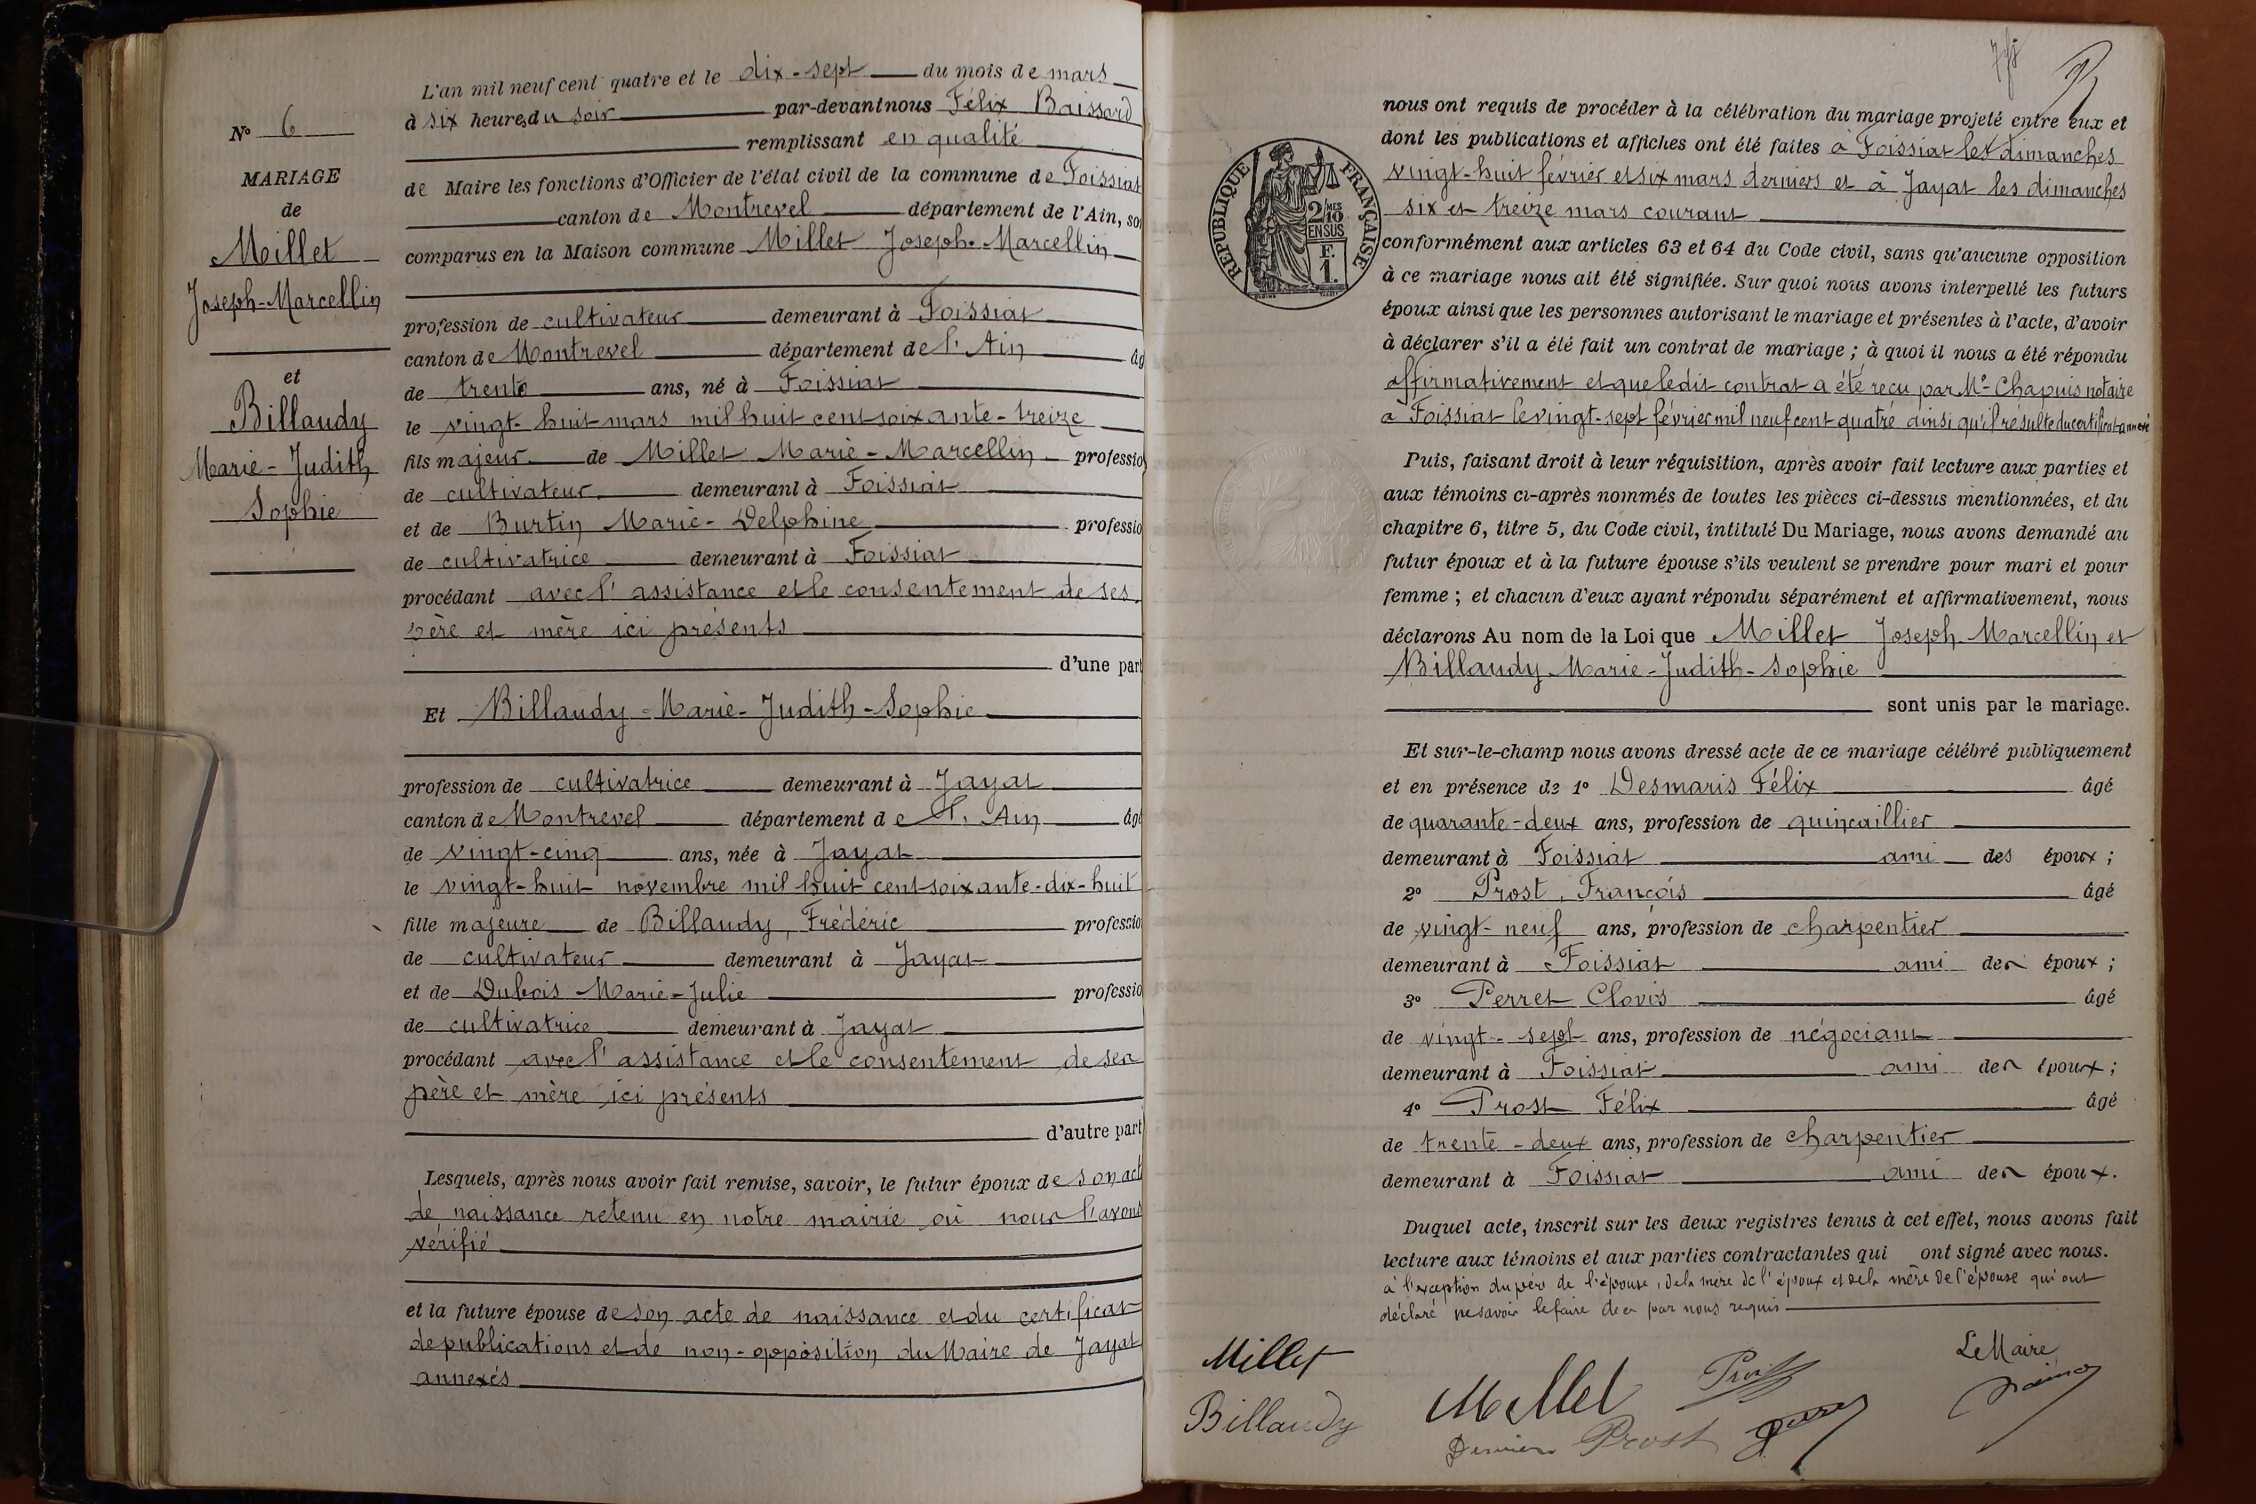 N° 6
MARIAGE
de
Millet
Joseph-Marcellin
et
Billaudy
Marie-Judith
Sophie
L'an mil neuf cent quatre et le dix-sept du mois de mars
à six heures du soir par-devant nous Félix Baissard
remplissant en qualité
de Maire les fonctions d'Officier de l'état civil de la commune de Foissiat
canton de Montrevel département de l'Ain, son
comparus en la Maison commune Millet Joseph-Marcellin
profession de cultivateur demeurant à Foissiat
canton de Montrevel département de l'Ain âg
de trente ans, né à Foissiat
le vingt-huit mars mil huit cent soixante-treize
fils majeur de Millet Marie-Marcellin professio
de cultivateur demeurant à Foissiat
et de Burtin Marie-Delphine professio
de cultivatrice demeurant à Foissiat
procédant avec l'assistance et le consentement de ses
père et mère ici présents
d'une part
Et Billaudy-Marie-Judith-Sophie
profession de cultivatrice demeurant à Jayat
canton de Montrevel département de l'Ain âgé
de vingt-cinq ans, née à Jayat
le vingt-huit novembre mil huit cent soixante-dix-huit
fille majeure de Billaudy, Frédéric professio
de cultivateur demeurant à Jayat
et de Dubois Marie-Julie professio
de cultivatrice demeurant à Jayat
procédant avec l'assistance et le consentement de ses
père et mère ici présents
d'autre part
Lesquels, après nous avoir fait remise, savoir, le futur époux de son act
de naissance retenu en notre mairie où nous l'avons
vérifié
et la future épouse de son acte de naissance et du certificat
de publications et de non-opposition du Maire de Jayat
annexés
nous ont requis de procéder à la célébration du mariage projeté entre eux et
dont les publications et affiches ont été faites à Foissiat les dimanches
vingt-huit février et six mars derniers et à Jayat les dimanches
six et treize mars courant
RÉPUBLIQUE FRANÇAISE
2/MES
10
EN SUS
F.
1.
conformément aux articles 63 et 64 du Code civil, sans qu'aucune opposition
à ce mariage nous ait été signifiée. Sur quoi nous avons interpellé les futurs
époux ainsi que les personnes autorisant le mariage et présentes à l'acte, d'avoir
à déclarer s'il a été fait un contrat de mariage ; à quoi il nous a été répondu
affirmativement et que ledit contrat a été recu par Me Chapuis notaire
a Foissiat le vingt-sept février mil neuf cent quatre ainsi qu'il résulte du certificat annexé
Puis, faisant droit à leur réquisition, après avoir fait lecture aux parties et
aux témoins ci-après nommés de toutes les pièces ci-dessus mentionnées, et du
chapitre 6, titre 5, du Code civil, intitulé Du Mariage, nous avons demandé au
futur époux et à la future épouse s'ils veulent se prendre pour mari et pour
femme ; et chacun d'eux ayant répondu séparément et affirmativement, nous
déclarons Au nom de la Loi que Millet Joseph-Marcellin et
Billaudy Marie-Judith-Sophie
sont unis par le mariage.
Et sur-le-champ nous avons dressé acte de ce mariage célébré publiquement
et en présence de 1° Desmaris Félix âgé
de quarante-deux ans, profession de quincaillier
demeurant à Foissiat ami des époux ;
2° Prost, François âgé
de vingt-neuf ans, profession de charpentier
demeurant à Foissiat ami des époux ;
3° Perret Clovis âgé
de vingt-sept ans, profession de négociant
demeurant à Foissiat ami des époux ;
4° Prost Félix âgé
de trente-deux ans, profession de charpentier
demeurant à Foissiat ami des époux.
Duquel acte, inscrit sur les deux registres tenus à cet effet, nous avons fait
lecture aux témoins et aux parties contractantes qui ont signé avec nous.
à l'exception du père de l'épouse, de la mère de l'époux et de la mère de l'épouse qui ont
déclaré ne savoir le faire de ce par nous requis
Millet
Billaudy
Millet
Prost
Le Maire
Prost